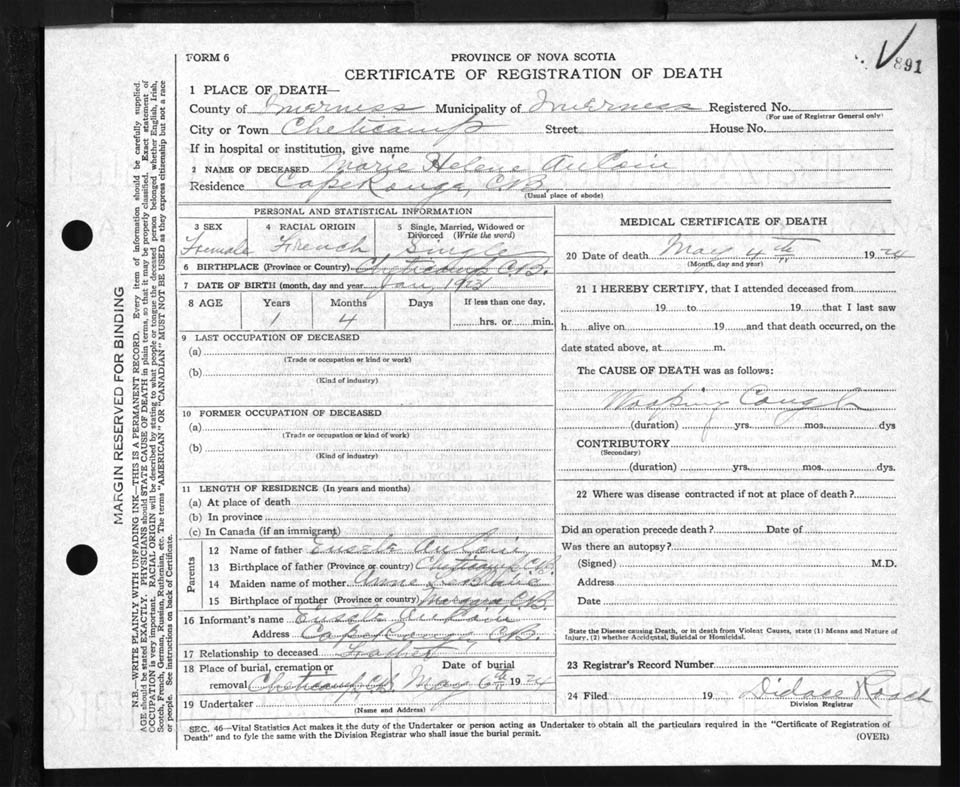 FORM 6
PROVINCE OF NOVA SCOTIA
891
CERTIFICATE OF REGISTRATION OF DEATH
1 PLACE OF DEATH—
County of Inverness Municipality of Inverness Registered No.
(For use of Registrar General only)
City or Town Cheticamp Street House No.
If in hospital or institution, give name
2 NAME OF DECEASED Marie Helene AuCoin
Residence Cape Rouge, C.B.
(Usual place of abode)
PERSONAL AND STATISTICAL INFORMATION
3 SEX 4 RACIAL ORIGIN 5 Single, Married, Widowed or
Divorced (Write the word)
Female French Single
6 BIRTHPLACE (Province or Country) Cheticamp C.B.
7 DATE OF BIRTH (month, day and year Jan, 1923
8 AGE Years Months Days If less than one day,
1 4 hrs. or min.
9 LAST OCCUPATION OF DECEASED
(a)
(Trade or occupation or kind or work)
(b)
(Kind of industry)
10 FORMER OCCUPATION OF DECEASED
(a)
(Trade or occupation or kind of work)
(b)
(Kind of industry)
11 LENGTH OF RESIDENCE (In years and months)
(a) At place of death
(b) In province
(c) In Canada (if an immigrant)
Parents
12 Name of father AuCoin
13 Birthplace of father (Province or country) Cheticamp C.B.
14 Maiden name of mother Anne LeBlanc
15 Birthplace of mother (Province or country) Margaree C.B.
16 Informant's name AuCoin
Address Cape Rouge, C.B.
17 Relationship to deceased Father
18 Place of burial, cremation or Date of burial
removal Cheticamp, C.B. May 6th 1924
19 Undertaker
(Name and Address)
MEDICAL CERTIFICATE OF DEATH
20 Date of death May 4th 1924
(Month, day and year)
21 I HEREBY CERTIFY, that I attended deceased from
19 to 19 that I last saw
h alive on 19 and that death occurred, on the
date stated above, at m.
The CAUSE OF DEATH was as follows:
Hooping Cough
(duration) yrs. mos. dys
CONTRIBUTORY
(Secondary)
(duration) yrs. mos. dys.
22 Where was disease contracted if not at place of death?
Did an operation precede death? Date of
Was there an autopsy?
(Signed) M.D.
Address
Date
State the Disease causing Death, or in death from Violent Causes, state (1) Means and Nature of
Injury, (2) whether Accidental, Suicidal or Homicidal.
23 Registrar's Record Number
24 Filed 19 Didace Roach
Division Registrar
SEC. 46—Vital Statistics Act makes it the duty of the Undertaker or person acting as Undertaker to obtain all the particulars required in the "Certificate of Registration of
Death" and to fyle the same with the Division Registrar who shall issue the burial permit.
(OVER)
MARGIN RESERVED FOR BINDING
N.B.—WRITE PLAINLY WITH UNFADING INK—THIS IS A PERMANENT RECORD. Every item of information should be carefully supplied.
AGE should be stated EXACTLY. PHYSICIANS should STATE CAUSE OF DEATH in plain terms, so that it may be properly classified. Exact statement of
OCCUPATION is very important. RACIAL ORIGIN will be described by stating to what people or tongue the deceased person belonged whether English, Irish,
Scotch, French, German, Russian, Ruthenian, etc. The terms "AMERICAN" OR "CANADIAN" MUST NOT BE USED as they express citizenship but not a race
or people. See instructions on back of Certificate.